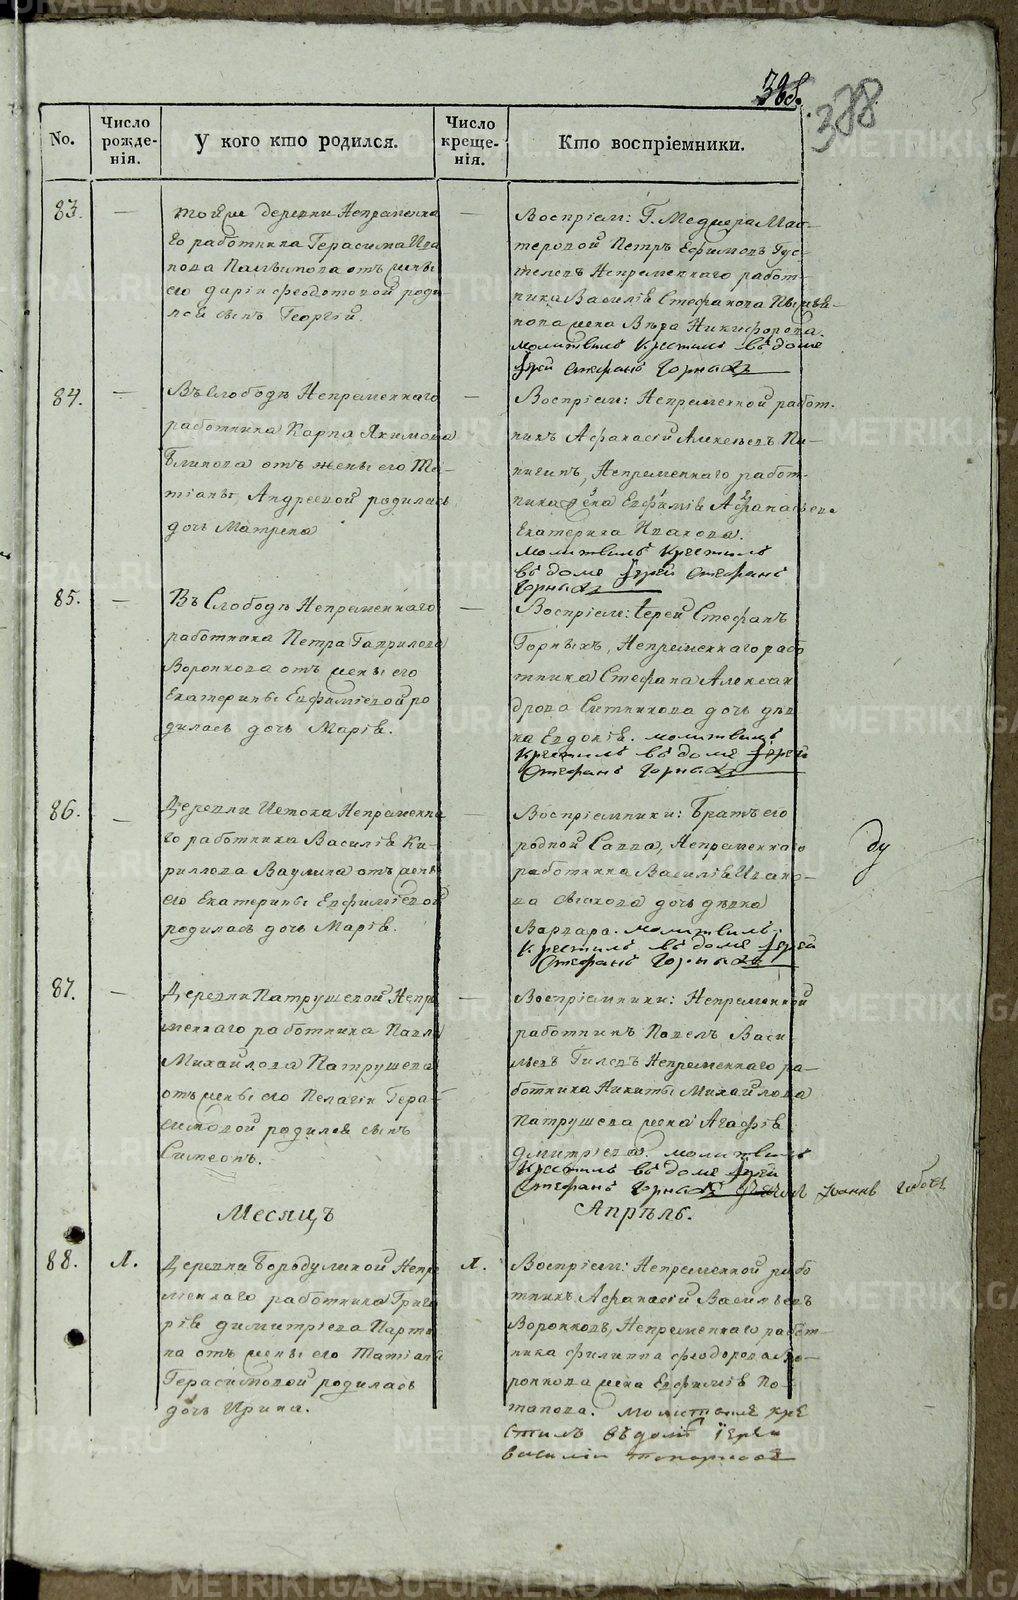 378
No.
Число рожде-нія.
У кого кто родился.
Число креще-нія.
Кто воспріемники.
83.
тойже деревни Непременна
го работника Герасима Ива
нова от жены
его Дарiи Феодотовой роди
лся сынъ Георгій.
Воспріем: Г.
теровой Петръ Ефимовъ
Непременнаго работ-
ника Василія Стефанова
нова жена Вѣра Никифорова.
молитвилъ крестилъ въ доме
Іерей Стефанъ Горныхъ
84.
Въ Слободѣ Непременнаго
работника Карпа Якимова
Блинова отъ жены его Та-
тіаны Андреевой родилась
дочь Матрена
Воспріем: Непременной работ-
никъ Афанасій Алексѣевъ Пи-
нигинъ, Непременнаго работ-
ника Евфимія Афанасьева
Екатерина Иванова.
молитвилъ крестилъ
въ доме Іерей Стефанъ
Горныхъ
85.
Въ Слободѣ Непременнаго
работника Петра Гаврилова
Воронкова отъ жены его
Екатерины Евфиміевой ро
дилась дочь Марія.
Воспріем: іерей Стефанъ
Горныхъ, Непременнаго рабо
тника Стефана Алексан
дрова Ситникова дочь дѣв
ка Евдокія. молитвилъ
крестилъ въ доме Іерей
Стефанъ Горныхъ
86.
Деревни Истока Непременна
го работника Василія Ки-
риллова Ваулина отъ жены
его Екатерины Евфиміевой
родилась дочь Марія.
Воспріемники: Братъ его
родной Савва, Непременнаго
работника Василія Ивано-
ва дочь дѣвка
Варвара. молитвилъ
крестилъ въ доме Іерей
Стефанъ Горныхъ
87.
Деревни Патрушевой Непре
меннаго работника Павла
Михайлова Патрушева
отъ жены его Пелагіи Гера-
симовой родился сынъ
Симеонъ.
Воспріемники: Непременной
работникъ Павелъ Васи
льевъ Гилевъ Непременнаго ра-
ботника Никиты Михайлова
Патрушева жена Агафія
Дмитріева. молитвилъ
крестилъ въ доме Іерей
Стефанъ Горныхъ
Месяцъ
Апрѣль.
88.
1.
Деревни Бородулиной Непре
меннаго работника Григо
рія Димитріева Парти
на отъ жены его Татіаны
Герасимовой родилась
дочь Ирина.
1.
Воспріем: Непременной рабо
тникъ Афанасій Васильевъ
Воронковъ, Непременнаго работ-
ника Филиппа Феодорова Во-
ронкова жена Евфимія По-
тапова. молитвилъ кре
стилъ въ доме Іереи
василіи топорковъ
METRIKI.GASO-URAL.RU